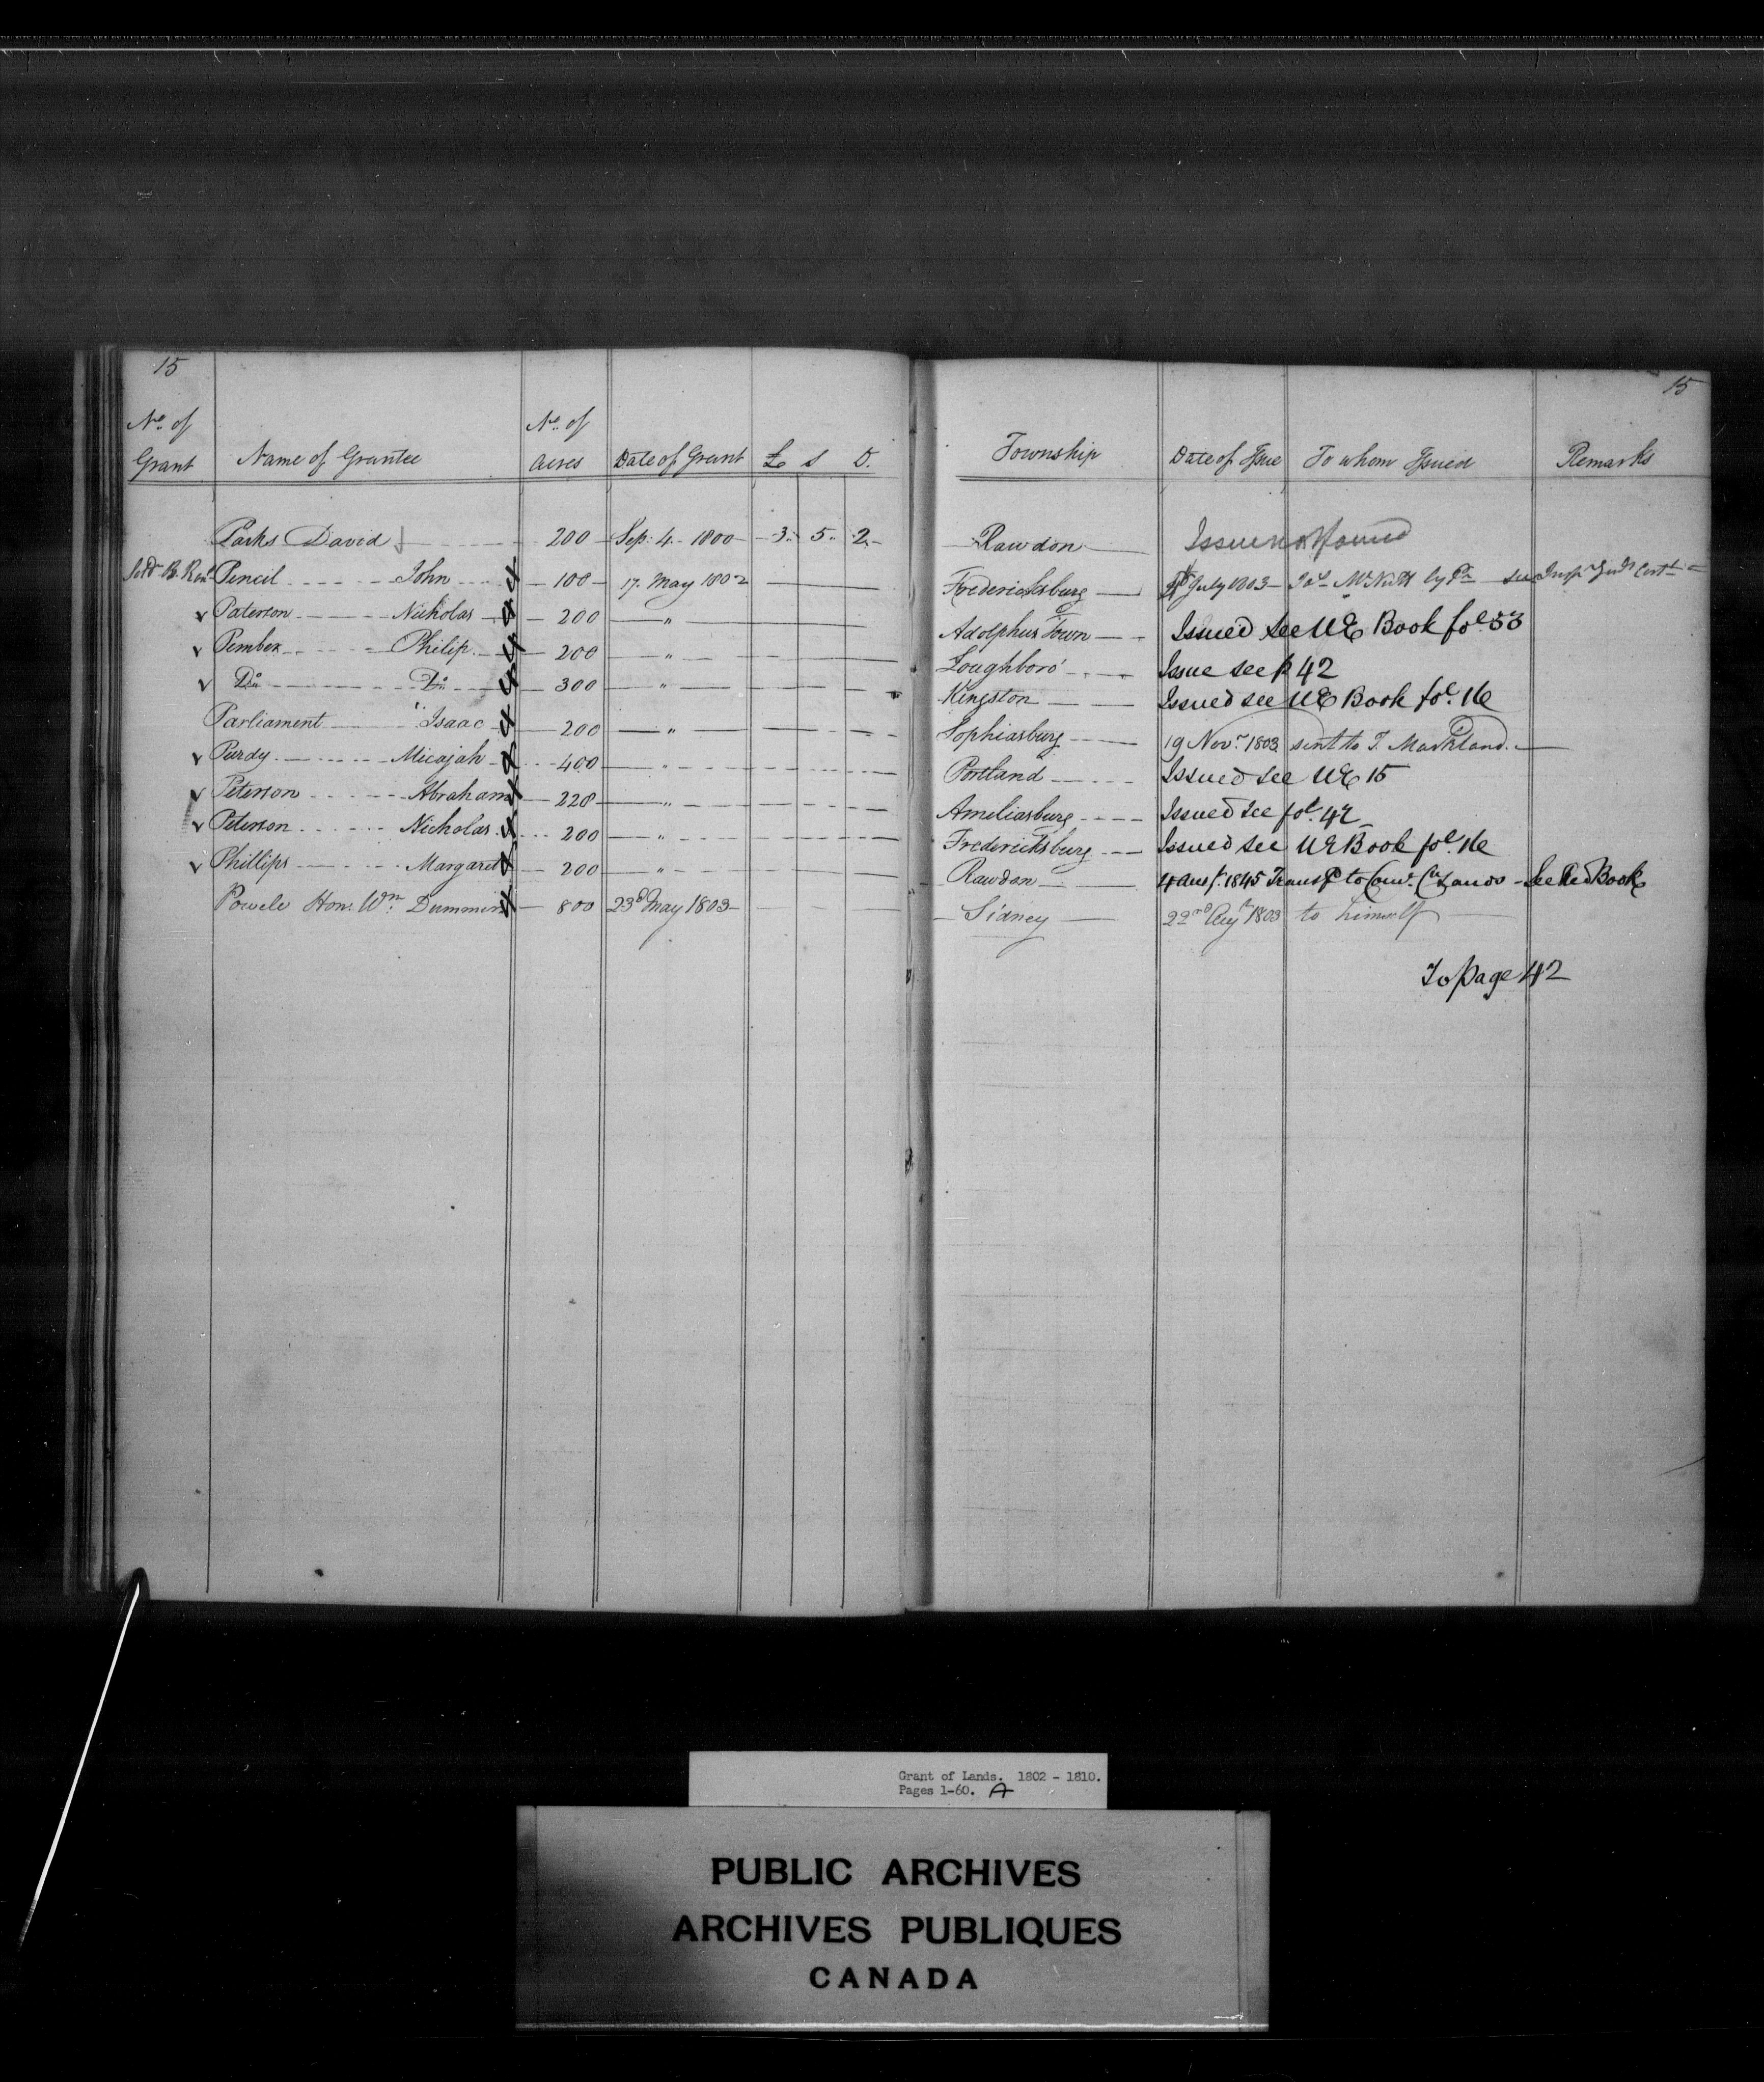 15
15
No. of Grant Name of Grantee No. of Acres Date of Grant £ S D. Township Date of Issue To whom Issued Remarks
Parks David 200 Sep. 4 1800 3 5 2 Rawdon Issue not found
Pencil John 100 17. May 1802 Fredericksburg July 1803 McNutt by see
Paterson Nicholas 200 " Adolphus Town Issued see UE Book fol. 33
Pember Philip 200 " Loughboro' Issue see p 42
Do Do 300 " Kingston Issued see UE Book fol. 16
Parliament Isaac 200 " Sophiasburg 19 Novr. 1803 sent to T. Markland.
Purdy Micajah 400 " Portland Issued see UE 15
Peterson Abraham 228 " Ameliasburg Issued see fol. 42
Peterson Nicholas 200 " Fredericksburg Issued see UE Book fol. 16
Phillips Margaret 200 " Rawdon 1845 to Lands See Book
Powell Hon. Wm. Dummer 800 23d May 1803 Sidney 22nd Augt 1803 to himself
To page 42
Grant of Lands. 1802 - 1810.
Pages 1-60. A
PUBLIC ARCHIVES
ARCHIVES PUBLIQUES
CANADA